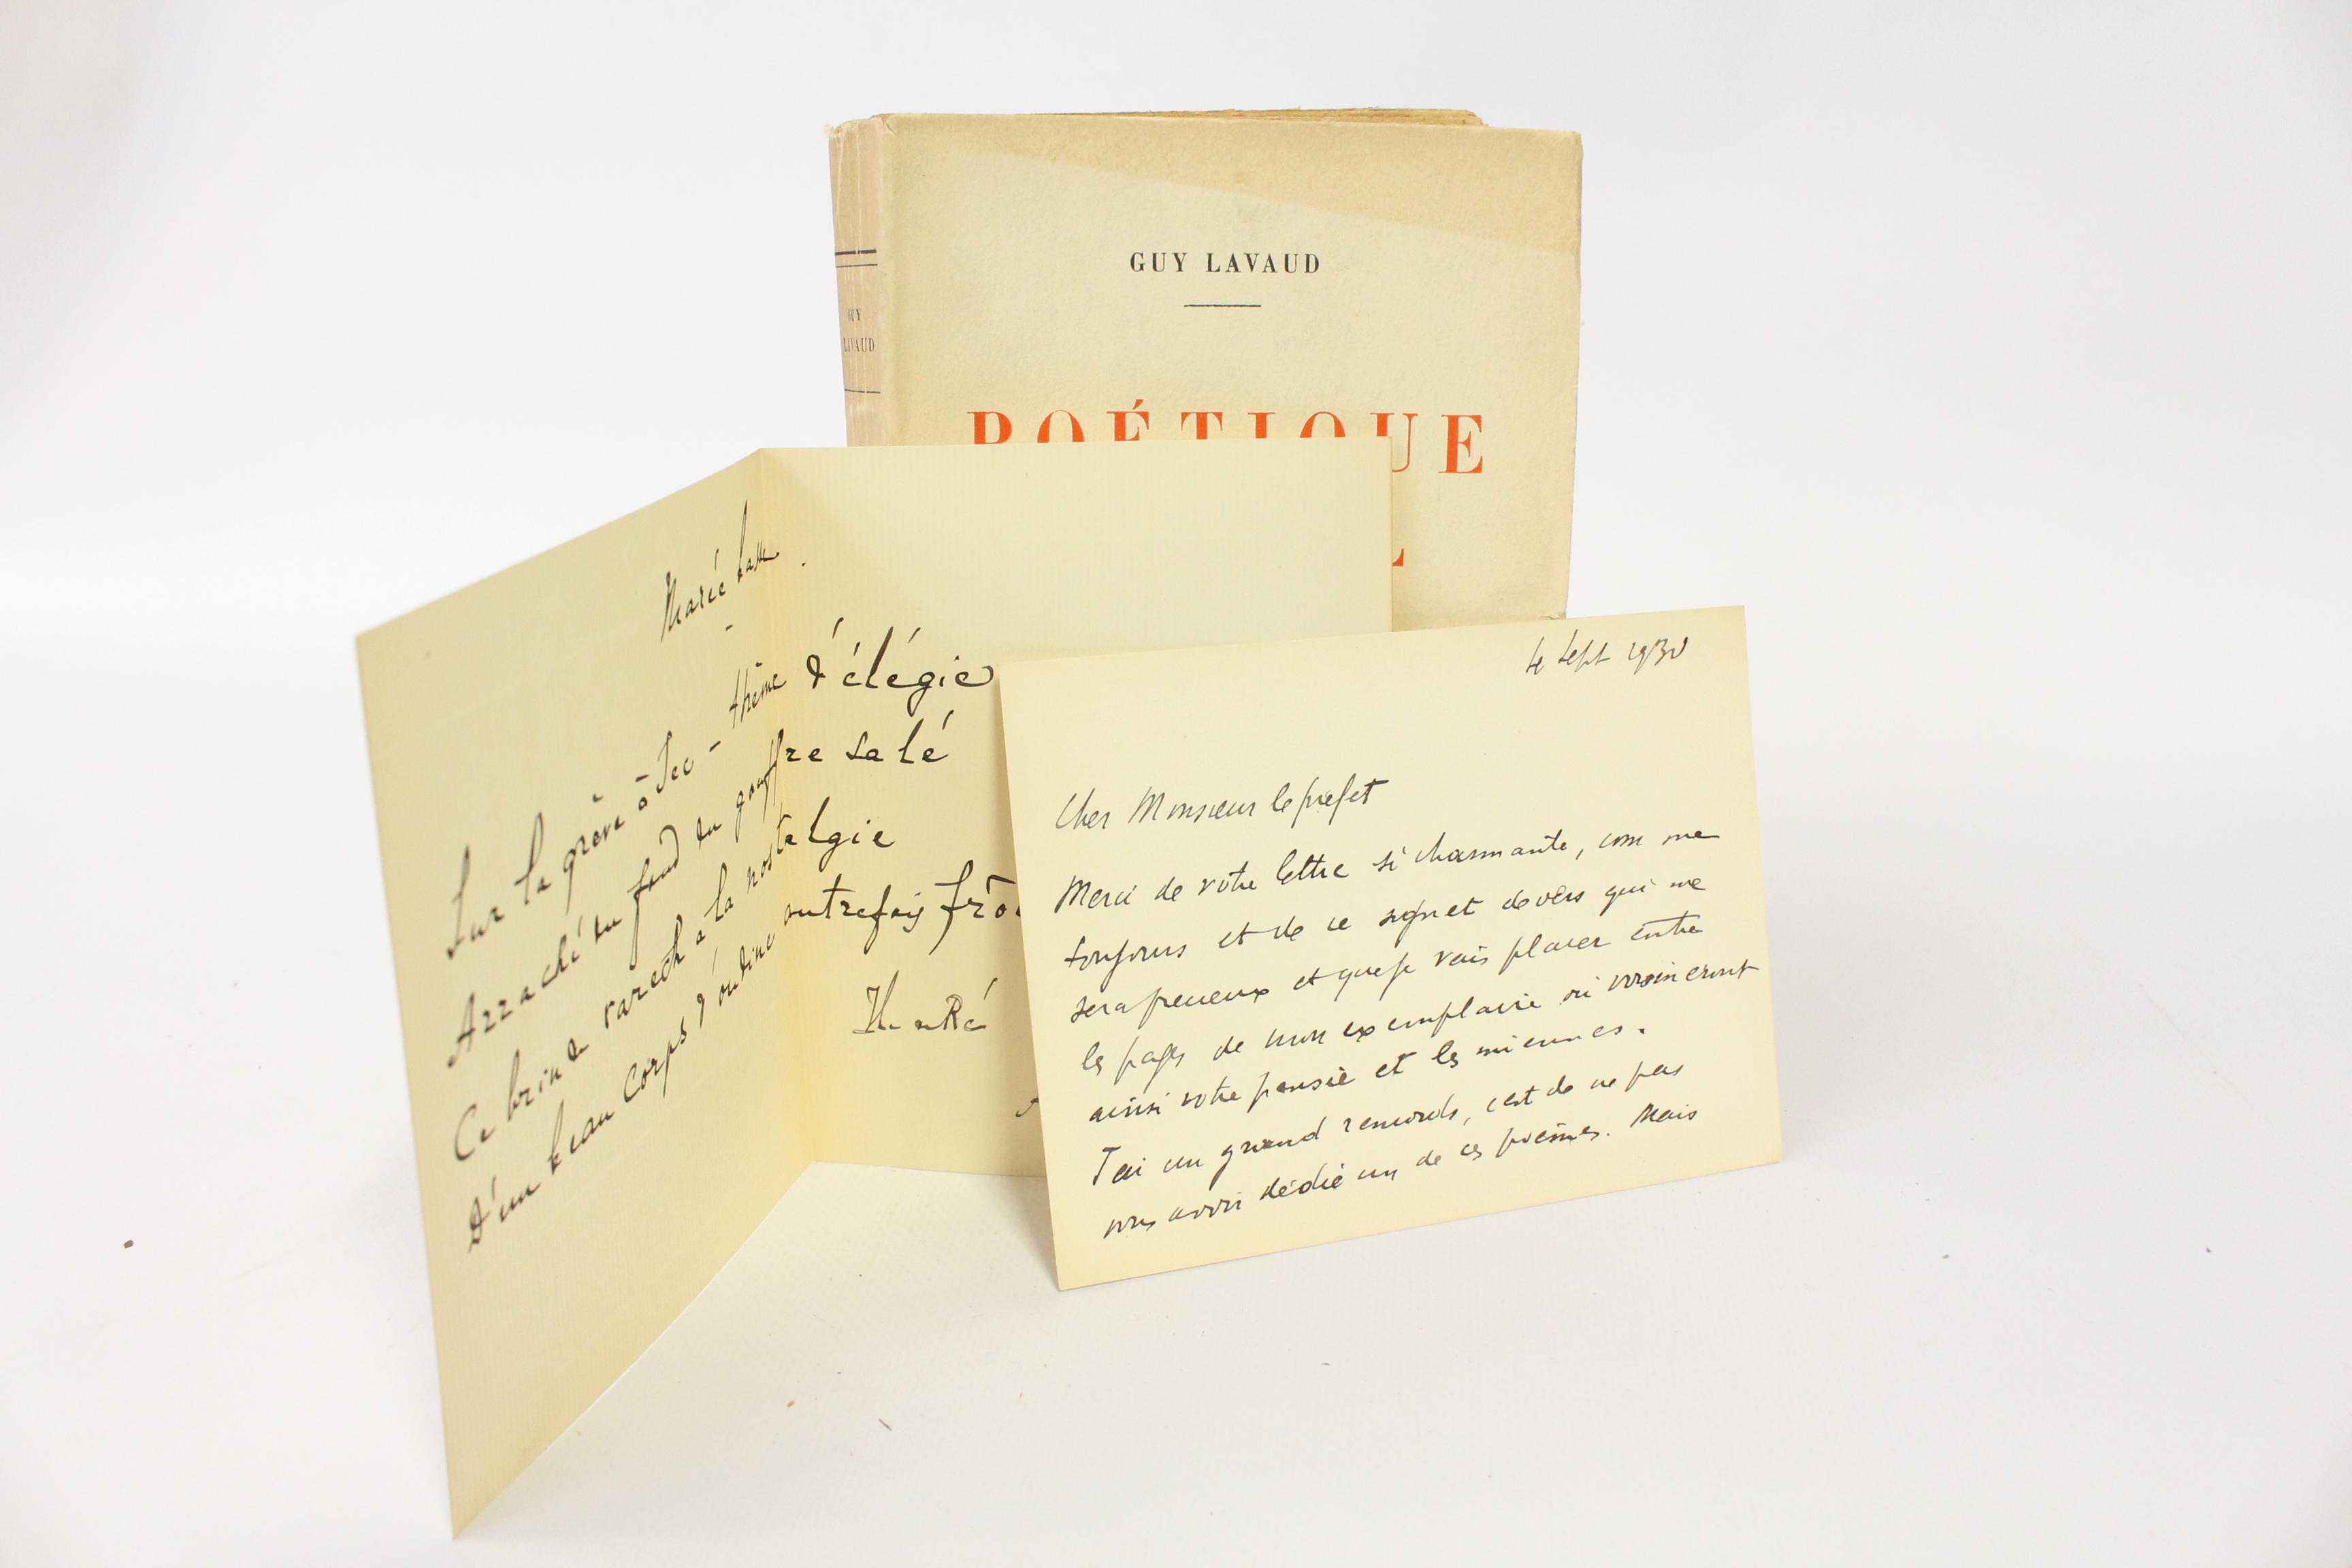 GUY LAVAUD
GUY
LAVAUD
POÉTIQUE
L
Marée basse
Sur la grève - ô Jeu - thème d'élégie
Arraché au fond du gouffre salé
Ce brin de varech a la nostalgie
D'un beau corps d'ondine autrefois frô
4 Sept 1930
Cher Monsieur le préfet
Merci de votre lettre si charmante, comme
toujours et de ce signet de vers qui me
sera précieux et que je vais placer entre
les pages de mon exemplaire où voisineront
ainsi votre pensée et les miennes.
J'ai un grand remords, c'est de ne pas
vous avoir dédié un de ces poèmes. Mais